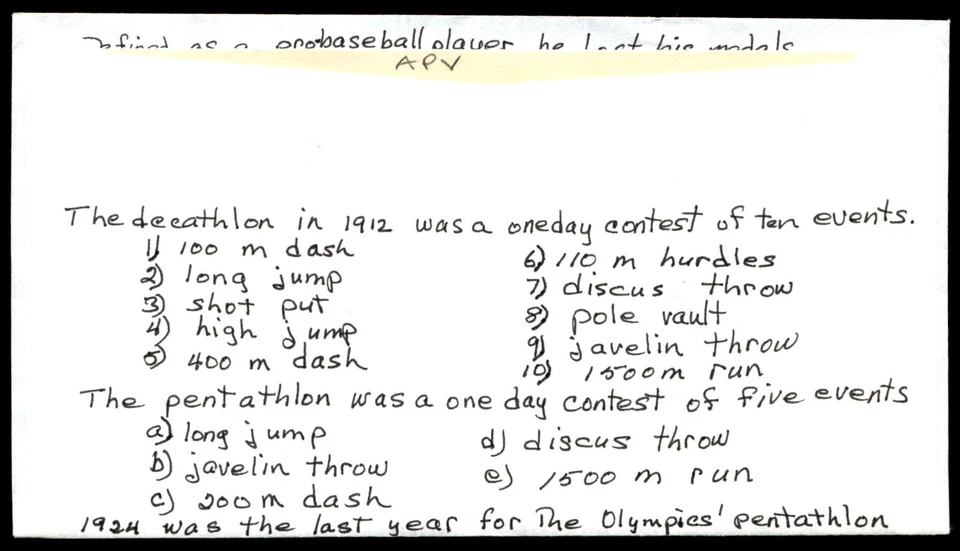 as a pro baseball player he lost his medals
APV
The decathlon in 1912 was a oneday contest of ten events.
1) 100 m dash
2) long jump
3) shot put
4) high jump
5) 400 m dash
6) 110 m hurdles
7) discus throw
8) pole vault
9) javelin throw
10) 1500m run
The pentathlon was a one day contest of five events
a) long jump
b) javelin throw
c) 200 m dash
d) discus throw
e) 1500 m run
1924 was the last year for The Olympics' pentathlon